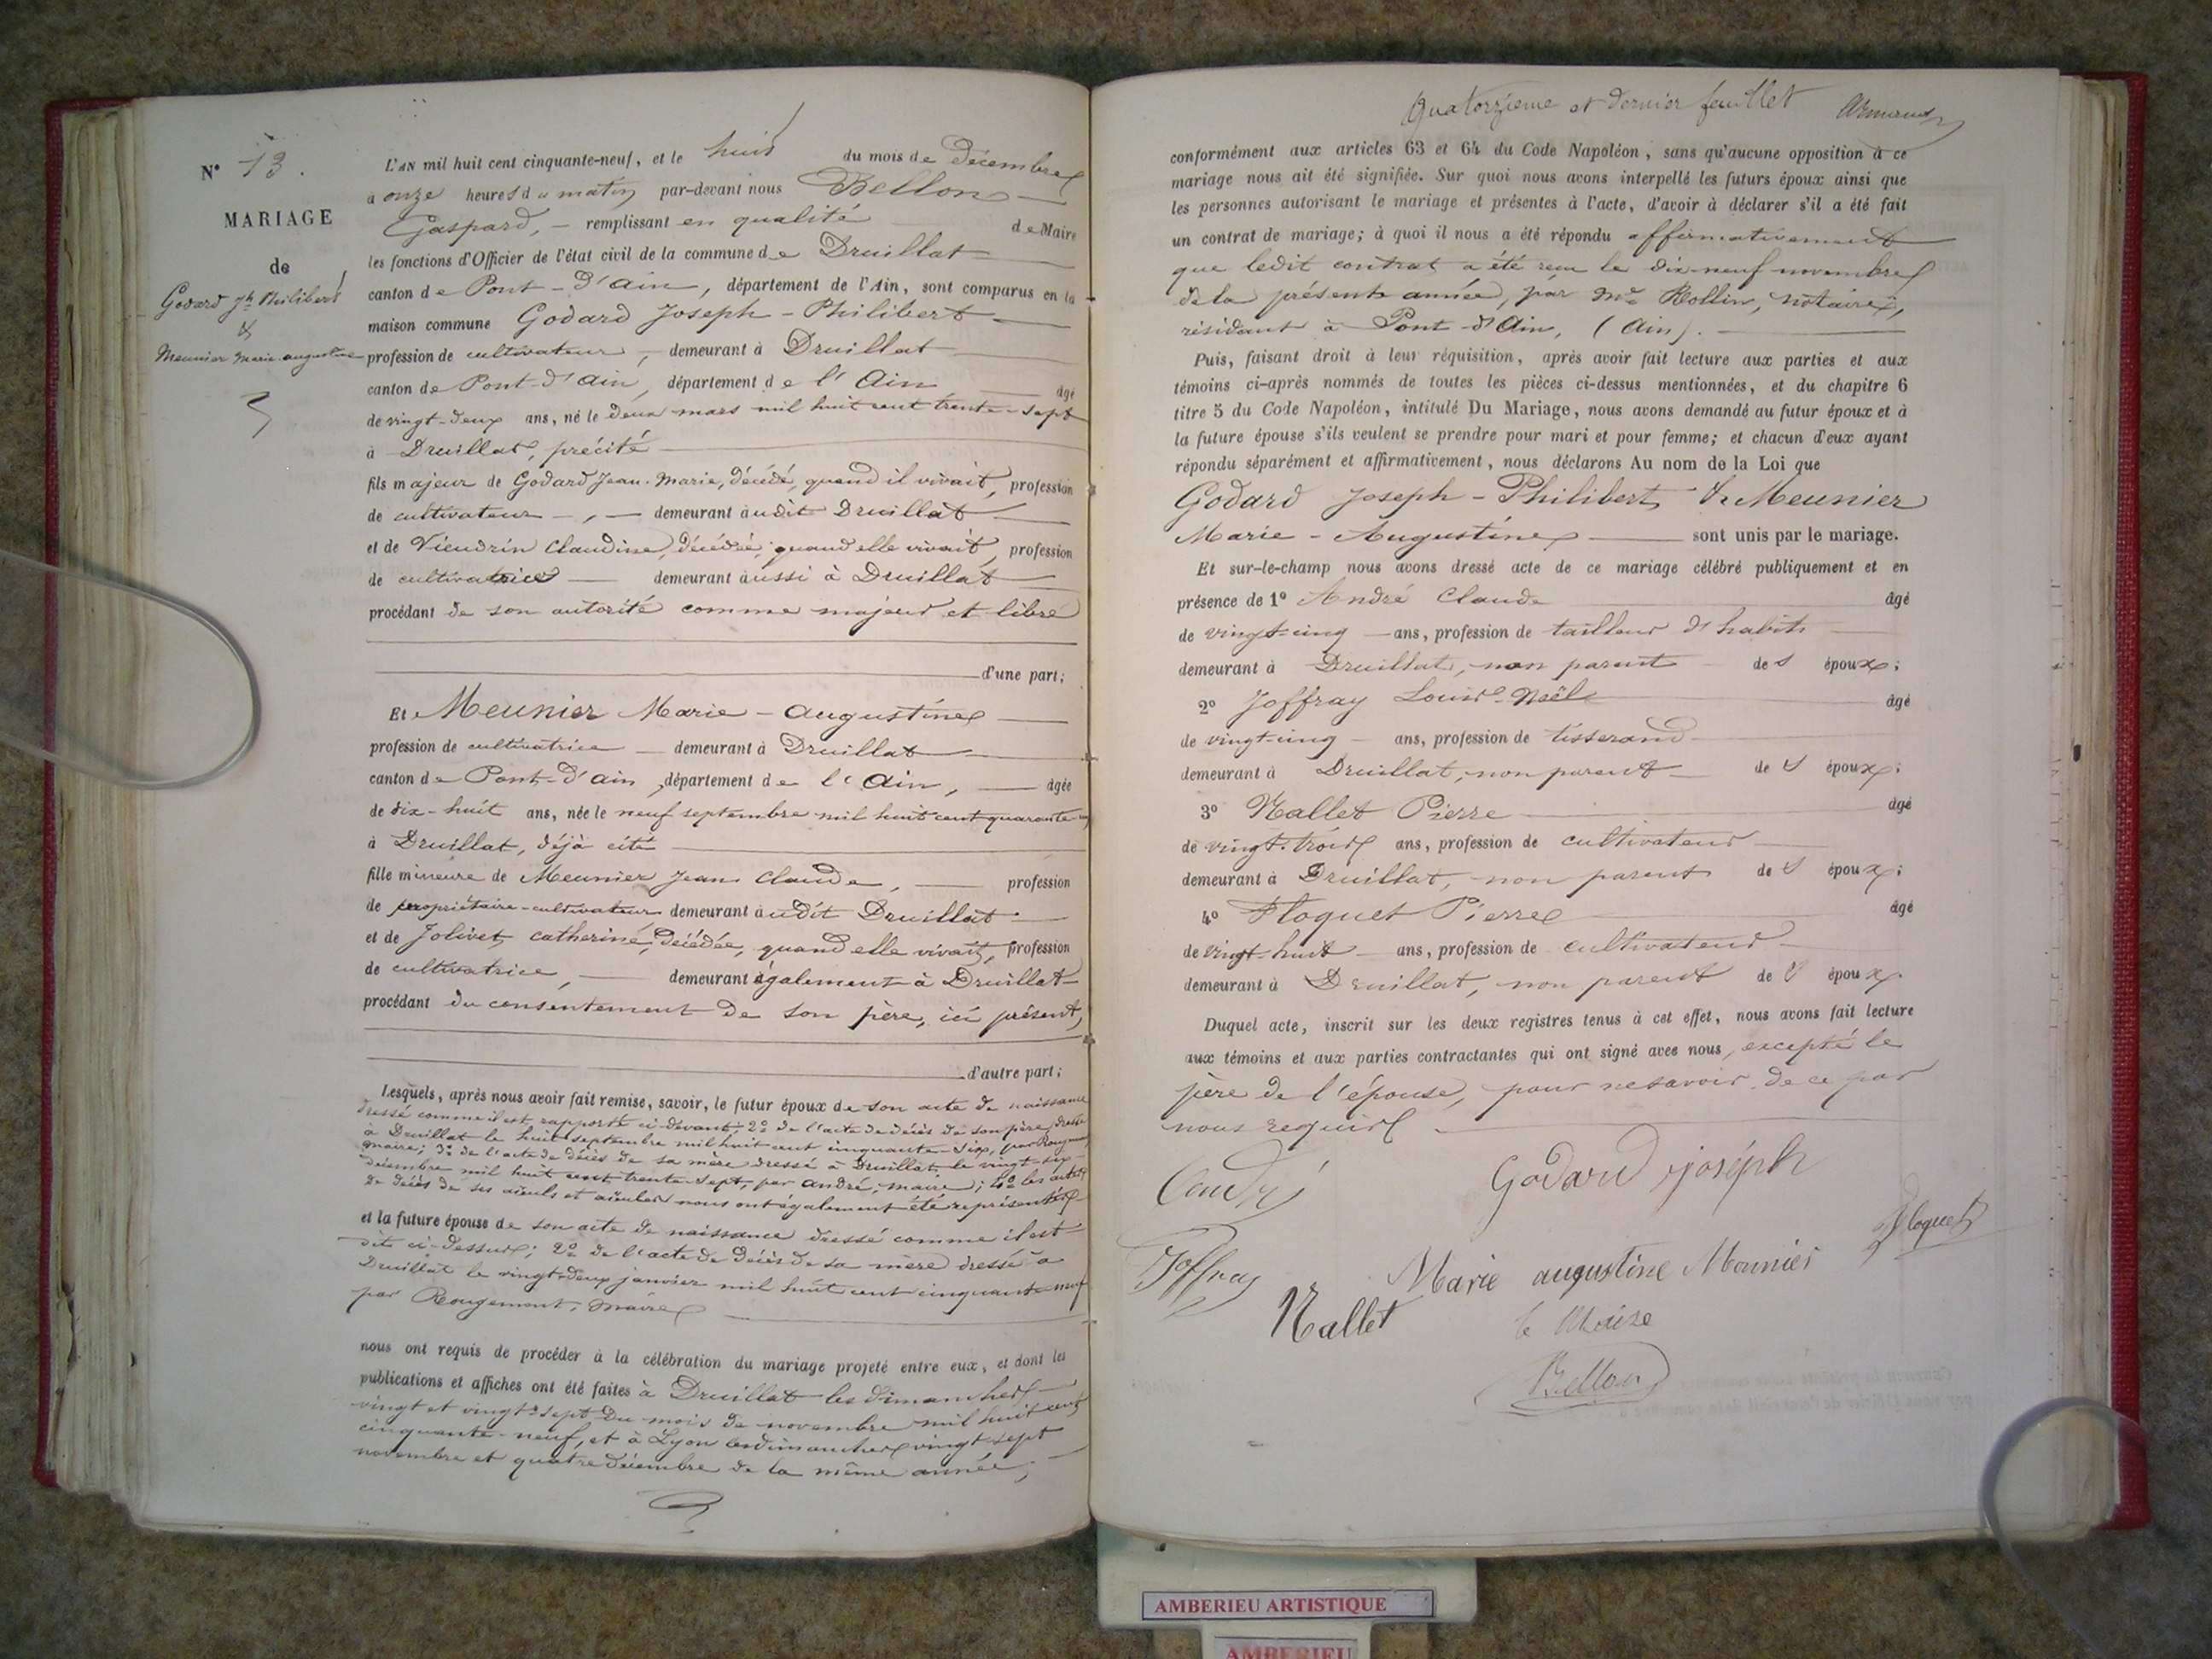 N° 13.
MARIAGE
de
Godard Jh Philibert
&
Meunier Marie augustine
L'AN mil huit cent cinquante-neuf, et le huit du mois de Décembre
à onze heures du matin par-devant nous Bellon
Gaspard, remplissant en qualité de Maire
les fonctions d'Officier de l'état civil de la commune de Druillat
canton de Pont-d'ain, département de l'Ain, sont comparus en la
maison commune Godard Joseph-Philibert
profession de cultivateur, demeurant à Druillat
canton de Pont-d'ain, département de l'Ain âgé
de vingt-deux ans, né le deux mars mil huit cent trente-sept
à Druillat, précité
fils majeur de Godard Jean-Marie, décédé, quand il vivait, profession
de cultivateur, demeurant audit Druillat
et de Vieudrin Claudine, décédée, quand elle vivait, profession
de cultivatrice demeurant aussi à Druillat
procédant de son autorité comme majeur et libre
d'une part;
Et Meunier Marie-Augustine
profession de cultivatrice demeurant à Druillat
canton de Pont-d'ain, département de l'Ain, âgée
de dix-huit ans, née le neuf septembre mil huit cent quarante
à Druillat, déjà cité
fille mineure de Meunier Jean Claude, profession
de propriétaire-cultivateur demeurant audit Druillat
et de Jolivet catherine, décédée, quand elle vivait, profession
de cultivatrice, demeurant également à Druillat
procédant du consentement de son père, ici présent,
d'autre part;
Lesquels, après nous avoir fait remise, savoir, le futur époux de son acte de naissance
dressé comme il est rapporté ci-devant; 2° de l'acte de décès de son père, dressé
à Druillat le huit septembre mil huit cent cinquante-six, par
maire; 3° de l'acte de décès de sa mère dressé à Druillat, le vingt-six
décembre mil huit cent trente-sept, par André, maire; 4° les actes
de décès de ses aïeuls et aïeules nous ont également été représentés
et la future épouse de son acte de naissance dressé comme il est
dit ci-dessus; 2° de l'acte de décès de sa mère dressé à
Druillat le vingt-deux janvier mil huit cent cinquante-neuf
par Rougemont, maire
nous ont requis de procéder à la célébration du mariage projeté entre eux, et dont les
publications et affiches ont été faites à Druillat les dimanches
vingt et vingt-sept du mois de novembre mil huit cent
cinquante-neuf, et à Lyon les dimanches vingt-sept
novembre et quatre décembre de la même année,
Quatorzième et dernier feuillet
conformément aux articles 63 et 64 du Code Napoléon, sans qu'aucune opposition à ce
mariage nous ait été signifiée. Sur quoi nous avons interpellé les futurs époux ainsi que
les personnes autorisant le mariage et présentes à l'acte, d'avoir à déclarer s'il a été fait
un contrat de mariage; à quoi il nous a été répondu affirmativement
que ledit contrat a été reçu le dix-neuf novembre
de la présente année, par Me Rollin, notaire,
résidant à Pont-d'Ain, (Ain).
Puis, faisant droit à leur réquisition, après avoir fait lecture aux parties et aux
témoins ci-après nommés de toutes les pièces ci-dessus mentionnées, et du chapitre 6
titre 5 du Code Napoléon, intitulé Du Mariage, nous avons demandé au futur époux et à
la future épouse s'ils veulent se prendre pour mari et pour femme; et chacun d'eux ayant
répondu séparément et affirmativement, nous déclarons Au nom de la Loi que
Godard Joseph-Philibert, & Meunier
Marie-Augustine sont unis par le mariage.
Et sur-le-champ nous avons dressé acte de ce mariage célébré publiquement et en
présence de 1° André Claude âgé
de vingt-cinq ans, profession de tailleur d'habits
demeurant à Druillat, non parent des époux;
2° Joffray Louis-Noël âgé
de vingt-cinq ans, profession de tisserand
demeurant à Druillat, non parent des époux;
3° Nallet Pierre âgé
de vingt-trois ans, profession de cultivateur
demeurant à Druillat, non parent des époux;
4° Floquet Pierre âgé
de vingt-huit ans, profession de cultivateur
demeurant à Druillat, non parent des époux.
Duquel acte, inscrit sur les deux registres tenus à cet effet, nous avons fait lecture
aux témoins et aux parties contractantes qui ont signé avec nous, excepté le
père de l'épouse, pour ne savoir de ce par
nous requis
Godard joséph
Floquet
Joffray
Marie augustine Meunier
Nallet
le Maire
Bellon
AMBERIEU ARTISTIQUE
AMBERIEU